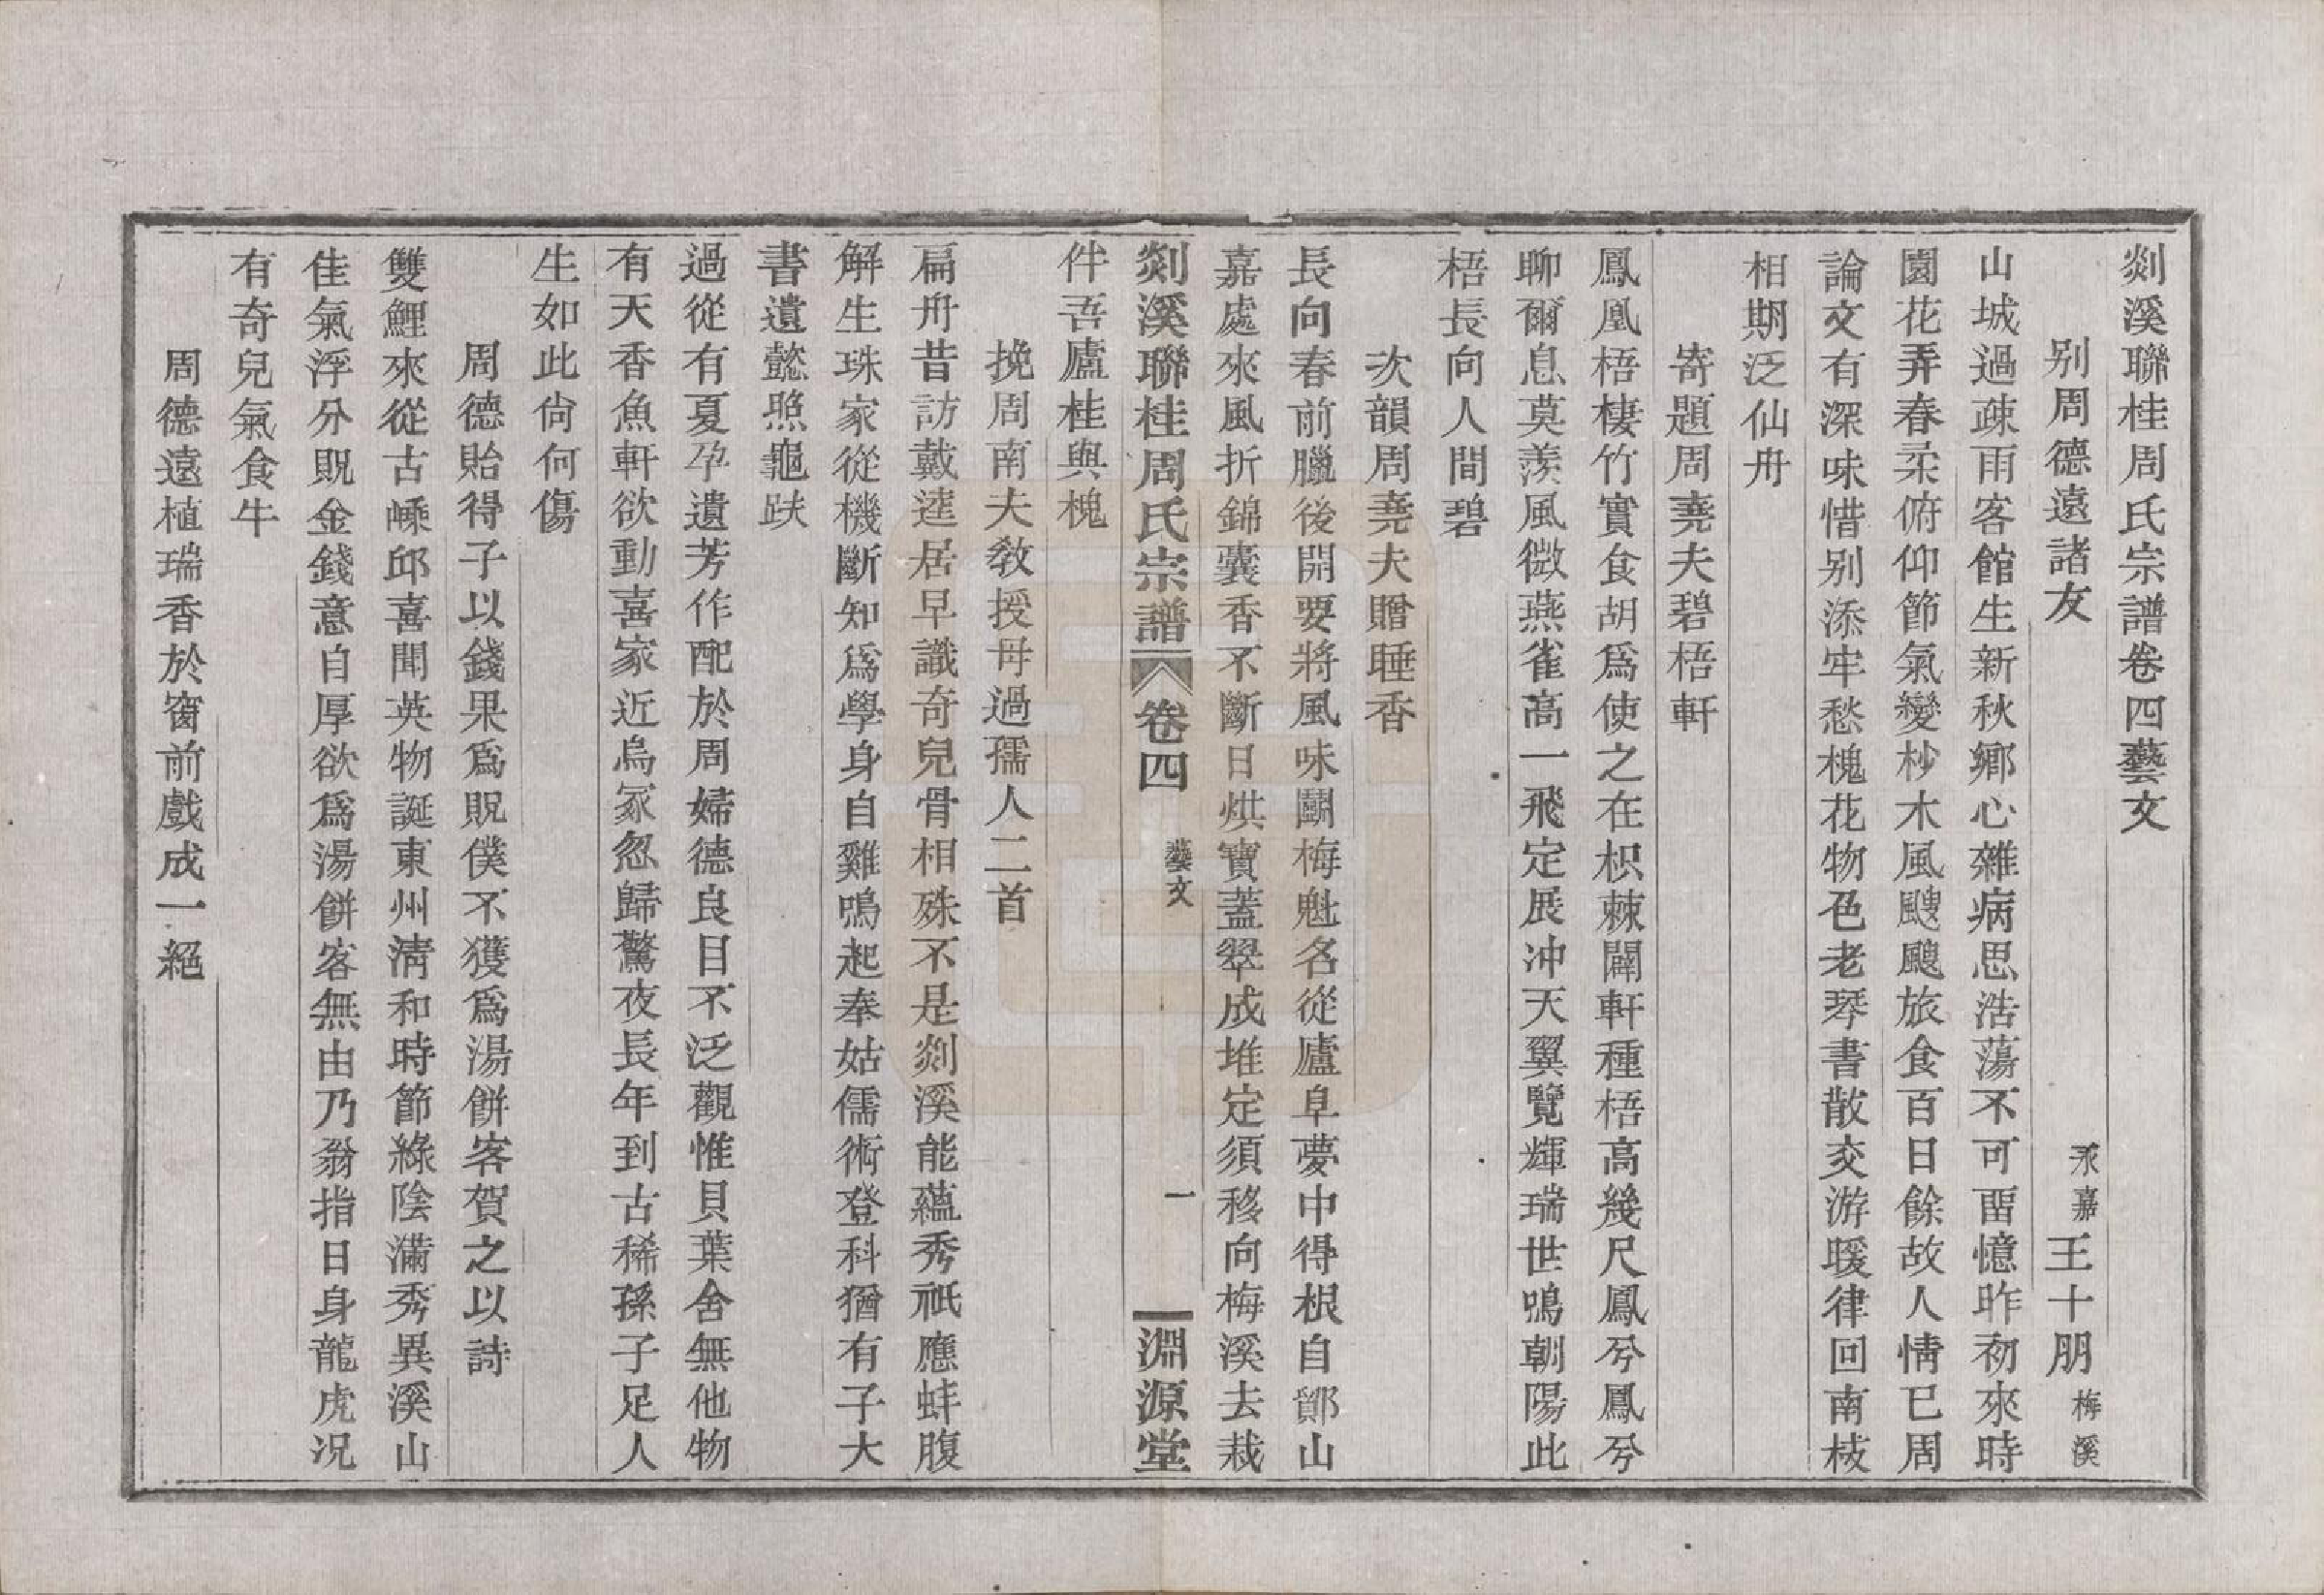 剡溪聯桂周氏宗譜卷四藝文
別周德遠諸友　永嘉王十朋梅溪
山城過疎雨客館生新秋鄉心雜病思浩蕩不可畱憶昨初來時
園花弄春柔俯仰節氣變杪木風颼颼旅食百日餘故人情已周
論文有深味惜別添牢愁槐花物色老琴書散交游暖律回南枝
相期泛仙舟
寄題周堯夫碧梧軒
鳳凰梧棲竹實食胡爲使之在枳棘闢軒種梧高幾尺鳳兮鳳兮
聊爾息莫羨風微燕雀高一飛定展冲天翼覽輝瑞世鳴朝陽此
梧長向人間碧
次韻周堯夫贈睡香
長向春前臘後開要將風味鬭梅魁名從廬阜夢中得根自鄮山
嘉處來風折錦囊香不斷日烘寶蓋翠成堆定須移向梅溪去栽
剡溪聯桂周氏宗譜　卷四　藝文　一　淵源堂
伴吾廬桂與槐
挽周南夫教授母過孺人二首
扁舟昔訪戴逵居早識奇兒骨相殊不是剡溪能蘊秀祇應蚌腹
解生珠家從機斷知爲學身自雞鳴起奉姑儒術登科猶有子大
書遺懿煦龜趺
過從有夏孕遺芳作配於周婦德良目不泛觀惟貝葉舍無他物
有天香魚軒欲動喜家近烏冢忽歸驚夜長年到古稀孫子足人
生如此尙何傷
周德貽得子以錢果爲貺僕不獲爲湯餅客賀之以詩
雙鯉來從古嵊邱喜聞英物誕東州清和時節綠陰滿秀異溪山
佳氣浮分貺金錢意自厚欲爲湯餅客無由乃翁指日身龍虎况
有奇兒氣食牛
周德遠植瑞香於窗前戲成一絕